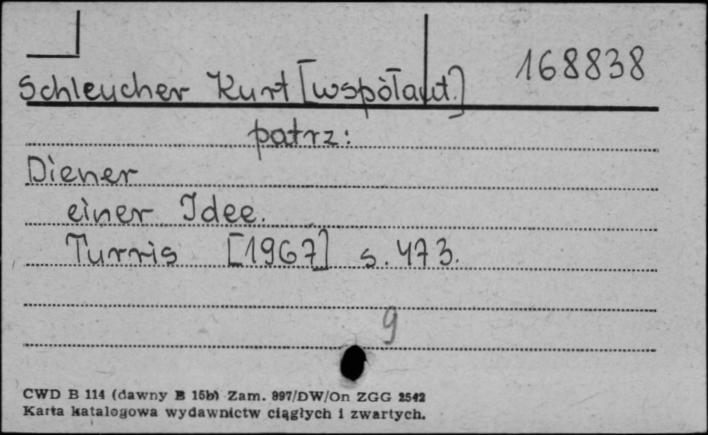 168838
Schleucher Kurt [współaut.]
patrz:
Diener
einer Idee.
Turris [1967] s. 473.
9
CWD B 114 (dawny B 15b) Zam. 897/DW/On ZGG 2542
Karta katalogowa wydawnictw ciągłych i zwartych.